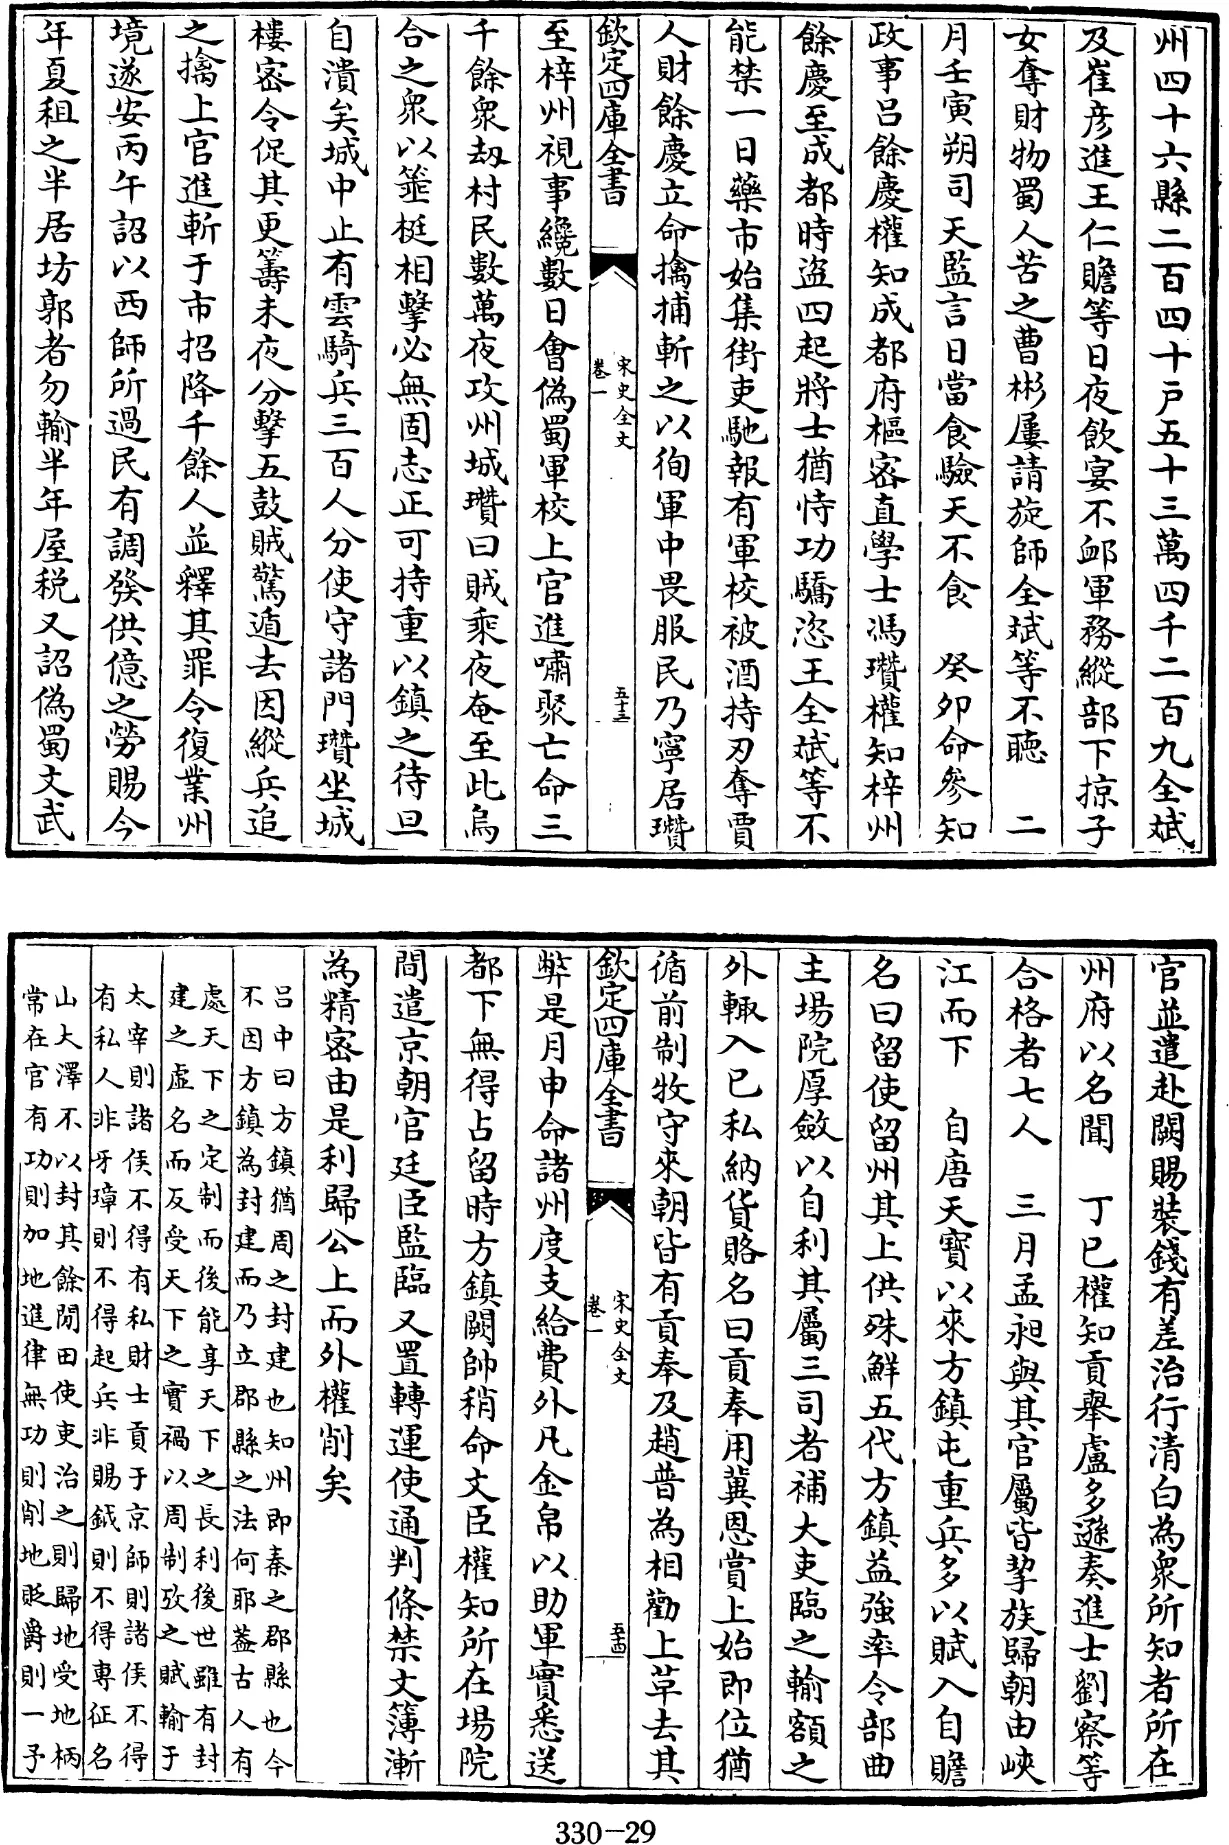 州四十六縣二百四十戸五十三萬四千二百九全斌
及崔彦進王仁贍等日夜飲宴不䘏軍務縱部下掠子
女奪財物蜀人苦之曹彬屢請旋師全斌等不聽　二
月壬寅朔司天監言日當食驗天不食　癸卯命參知
政事吕餘慶權知成都府樞密直學士馮瓚權知梓州
餘慶至成都時盗四起將士猶恃功驕恣王全斌等不
能禁一日藥市始集街吏馳報有軍校被酒持刃奪賈
人財餘慶立命擒捕斬之以徇軍中畏服民乃寧居瓚
欽定四庫全書
宋史全文
卷一
五十三
至梓州視事纔數日會偽蜀軍校上官進嘯聚亡命三
千餘衆刼村民數萬夜攻州城瓚曰賊乘夜奄至此烏
合之衆以箠梃相擊必無固志正可持重以鎮之待旦
自潰矣城中止有雲騎兵三百人分使守諸門瓚坐城
樓密令促其更籌未夜分擊五鼓賊驚遁去因縱兵追
之擒上官進斬于市招降千餘人並釋其罪令復業州
境遂安丙午詔以西師所過民有調發供億之勞賜今
年夏租之半居坊郭者勿輸半年屋税又詔偽蜀文武
官並遣赴闕賜裝錢有差治行清白為衆所知者所在
州府以名聞　丁巳權知貢舉盧多遜奏進士劉察等
合格者七人　三月孟昶與其官屬皆挈族歸朝由峽
江而下　自唐天寶以來方鎮屯重兵多以賦入自贍
名曰留使留州其上供殊鮮五代方鎮益強率令部曲
主場院厚斂以自利其屬三司者補大吏臨之輸額之
外輙入已私納貨賂名曰貢奉用冀恩賞上始即位猶
循前制牧守來朝皆有貢奉及趙普為相勸上革去其
欽定四庫全書
宋史全文
卷一
五十四
弊是月申命諸州度支給費外凡金帛以助軍實悉送
都下無得占留時方鎮闕帥稍命文臣權知所在場院
間遣京朝官廷臣監臨又置轉運使通判條禁文簿漸
為精密由是利歸公上而外權削矣
吕中曰方鎮猶周之封建也知州即秦之郡縣也今
不因方鎮為封建而乃立郡縣之法何耶蓋古人有
處天下之定制而後能享天下之長利後世雖有封
建之虛名而反受天下之實禍以周制攷之賦輸于
太宰則諸侯不得有私財士貢于京師則諸侯不得
有私人非牙璋則不得起兵非賜鉞則不得專征名
山大澤不以封其餘閒田使吏治之則歸地受地柄
常在官有功則加地進律無功則削地貶爵則一予
330-29